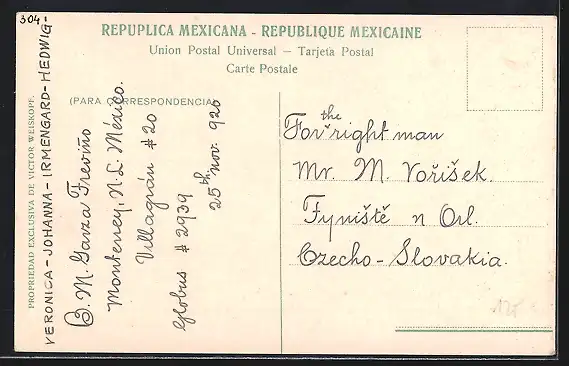 304
REPUPLICA MEXICANA - REPUBLIQUE MEXICAINE
Union Postal Universal — Tarjeta Postal
Carte Postale
(PARA CORRESPONDENCIA)
PROPRIEDAD EXCLUSIVA DE VICTOR WEISKOPF.
VERONICA-JOHANNA-IRMENGARD-HEDWIG-
B. M. Garza Treviño
Monterrey, N.L. México.
Villagrán #20
Globus #2939
25th nov. 926
the
For right man
Mr. M. Voříšek.
Tyniště n Orl.
Czecho-Slovakia.
125